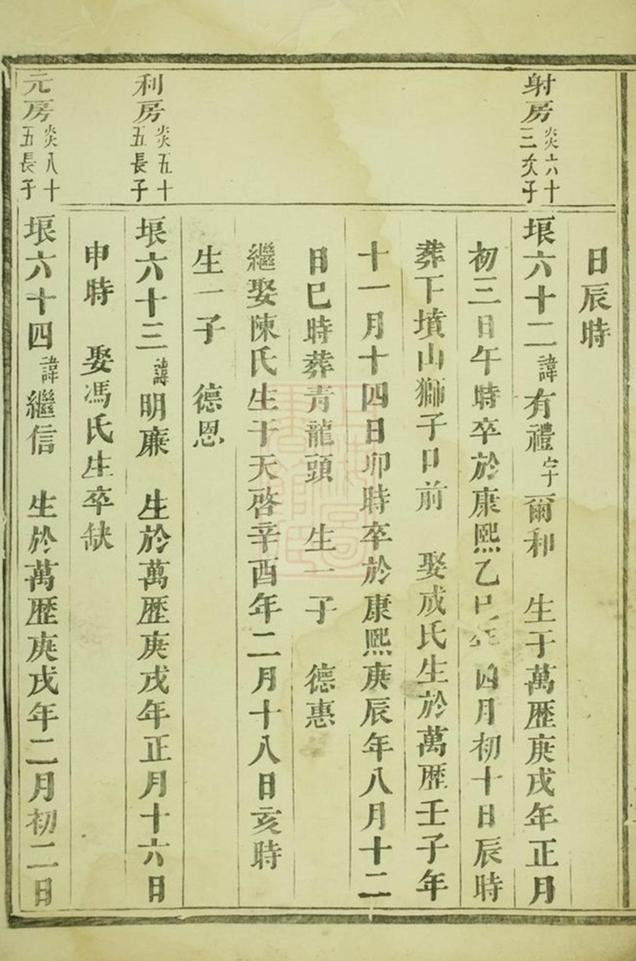 日辰時
射房炎六十三次子
垠六十二諱有禮字爾和 生于萬歷庚戌年正月
初三日午時卒於康熙乙巳年四月初十日辰時
葬下墳山獅子口前 娶成氏生於萬歷壬子年
十一月十四日卯時卒於康熙庚辰年八月十二
日巳時葬青龍頭 生一子 德惠
繼娶陳氏生于天啓辛酉年二月十八日亥時
生一子 德恩
利房炎五十五長子
垠六十三諱明廉 生於萬歷庚戌年正月十六日
申時 娶馮氏生卒缺
元房炎八十五長子
垠六十四諱繼信 生於萬歷庚戌年二月初二日